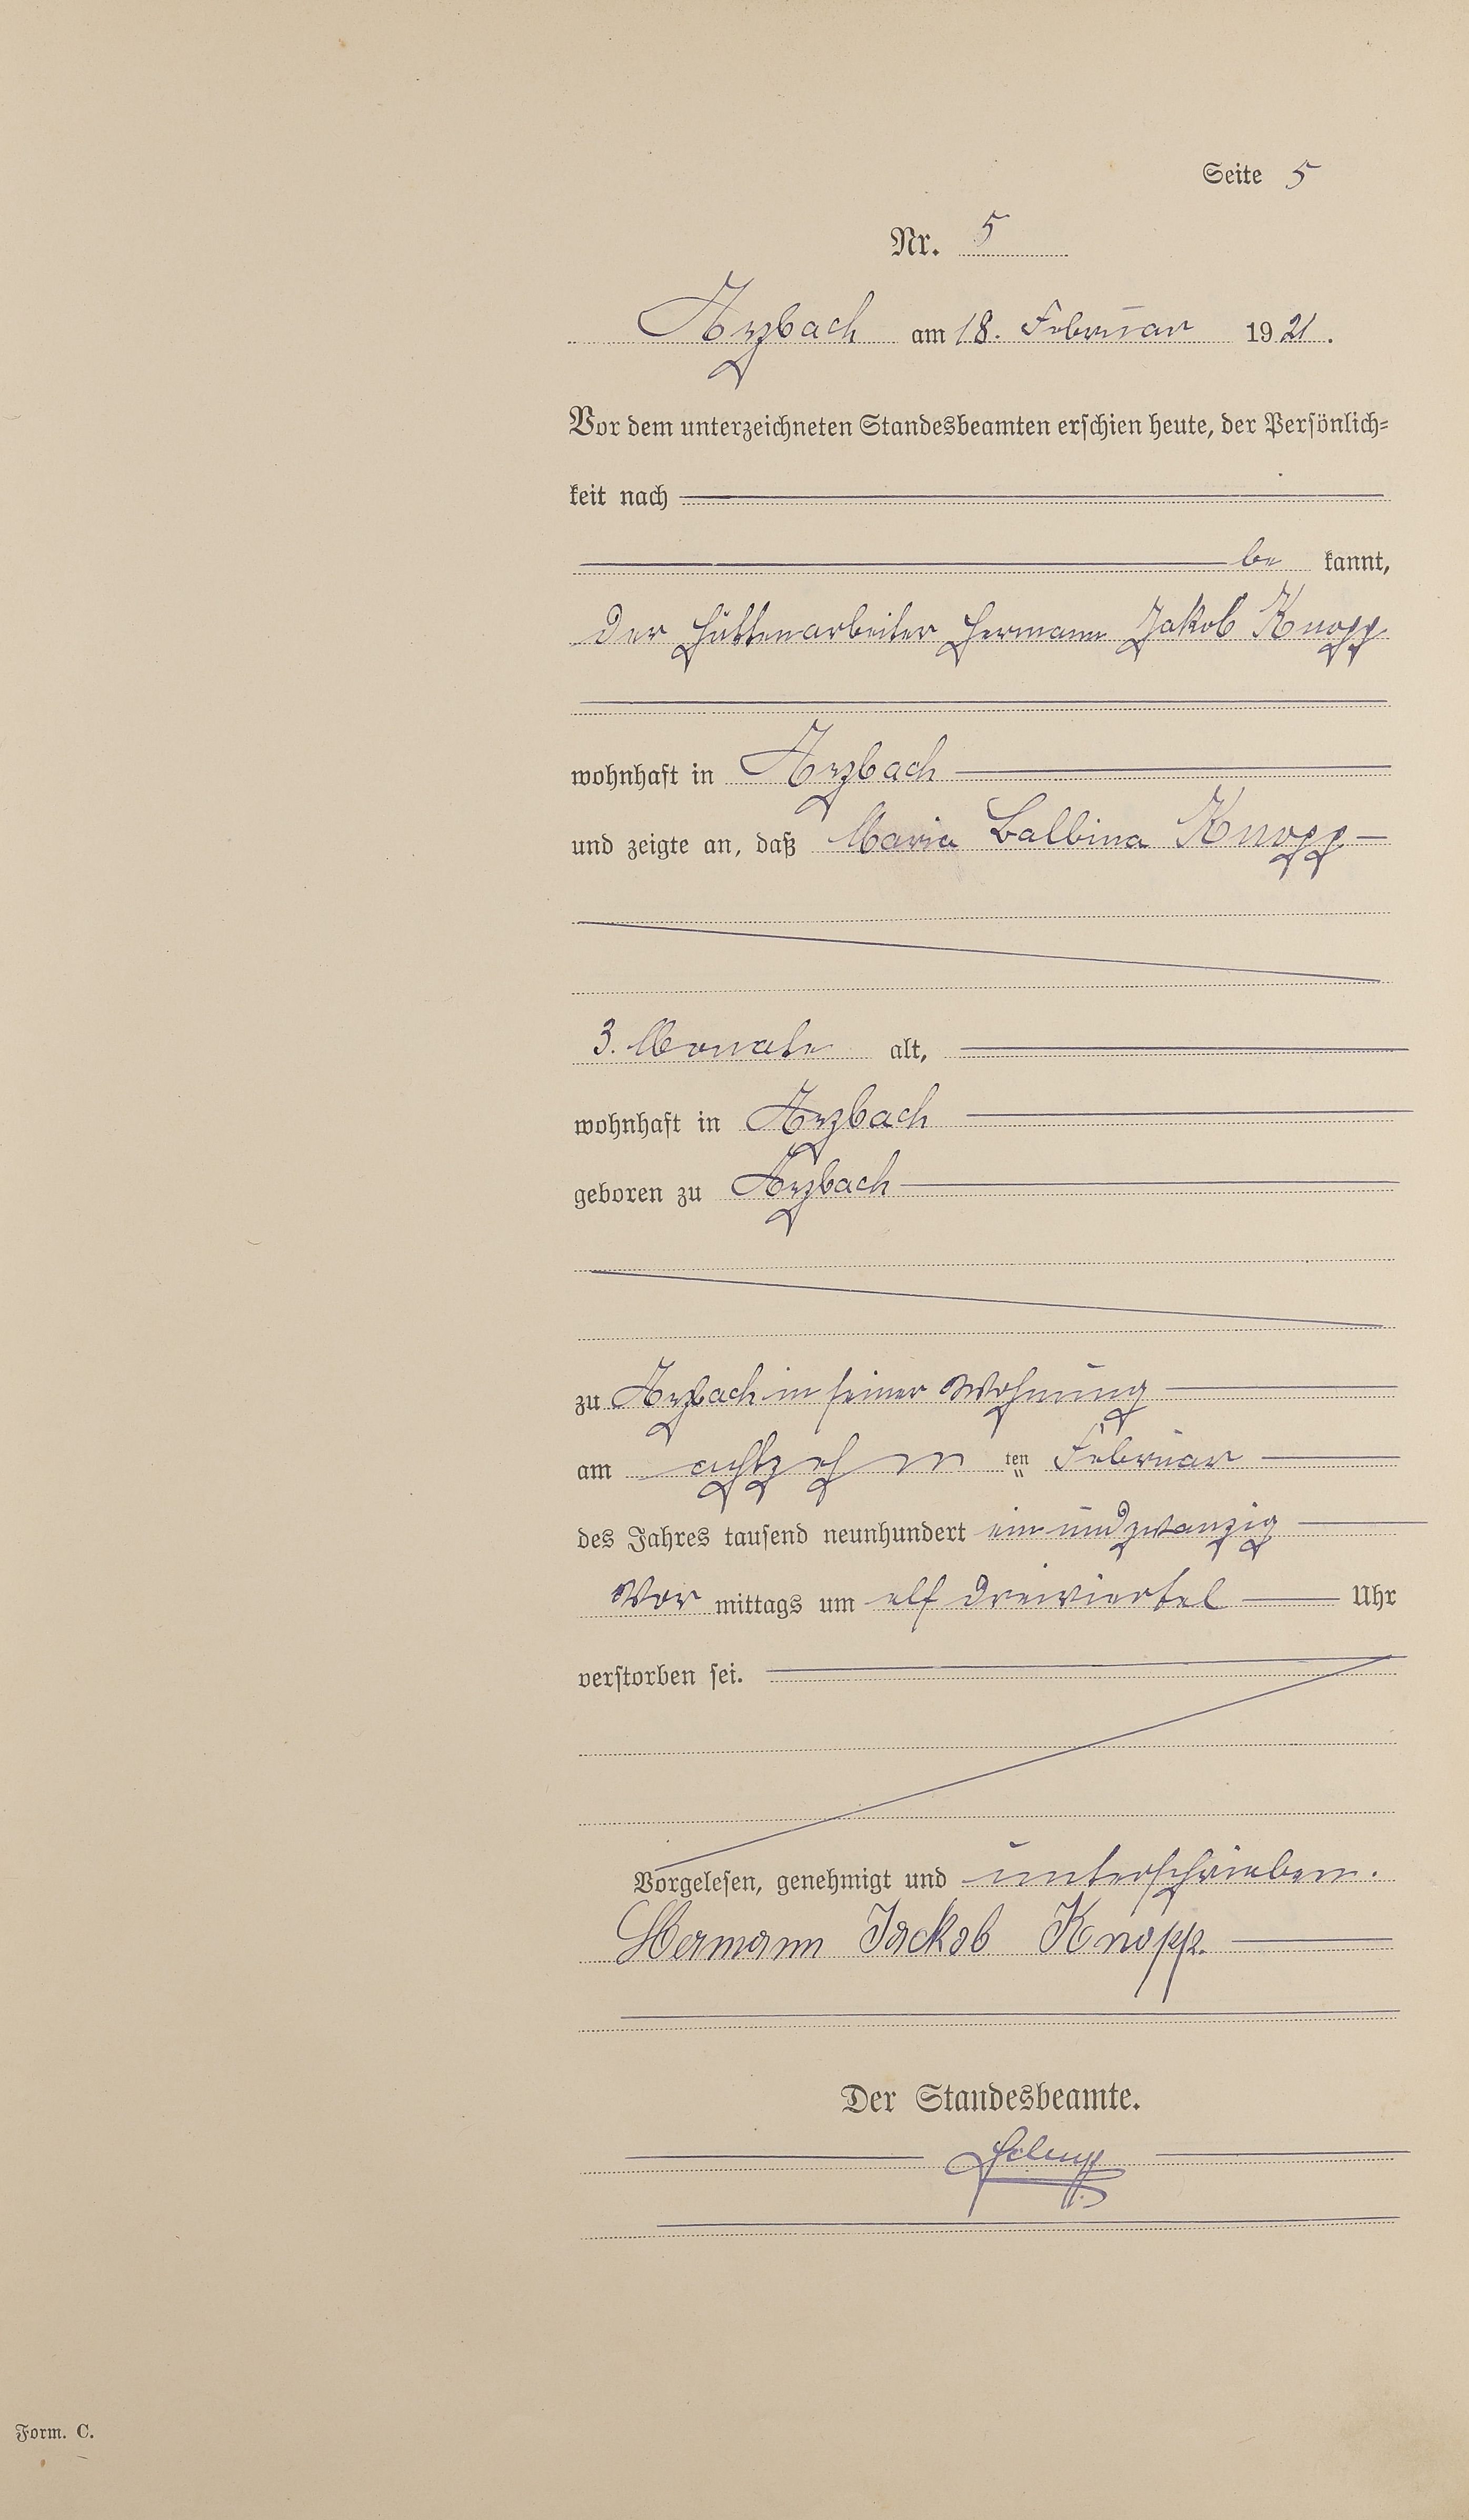 Seite 5
Nr. 5
Arzbach am 18. Februar 1921.
Vor dem unterzeichneten Standesbeamten erschien heute, der Persönlich-
keit nach
be kannt,
der Hüttenarbeiter Hermann Jakob Knopp
wohnhaft in Arzbach
und zeigte an, daß Maria Balbina Knopp
3. Monate alt,
wohnhaft in Arzbach
geboren zu Arzbach
zu Arzbach in seiner Wohnung
am achtzehn ten Februar
des Jahres tausend neunhundert ein und zwanzig
Vor mittags um elf dreiviertel Uhr
verstorben sei.
Vorgelesen, genehmigt und unterschrieben.
Hermann Jackob Knopp.
Der Standesbeamte.
Form. C.